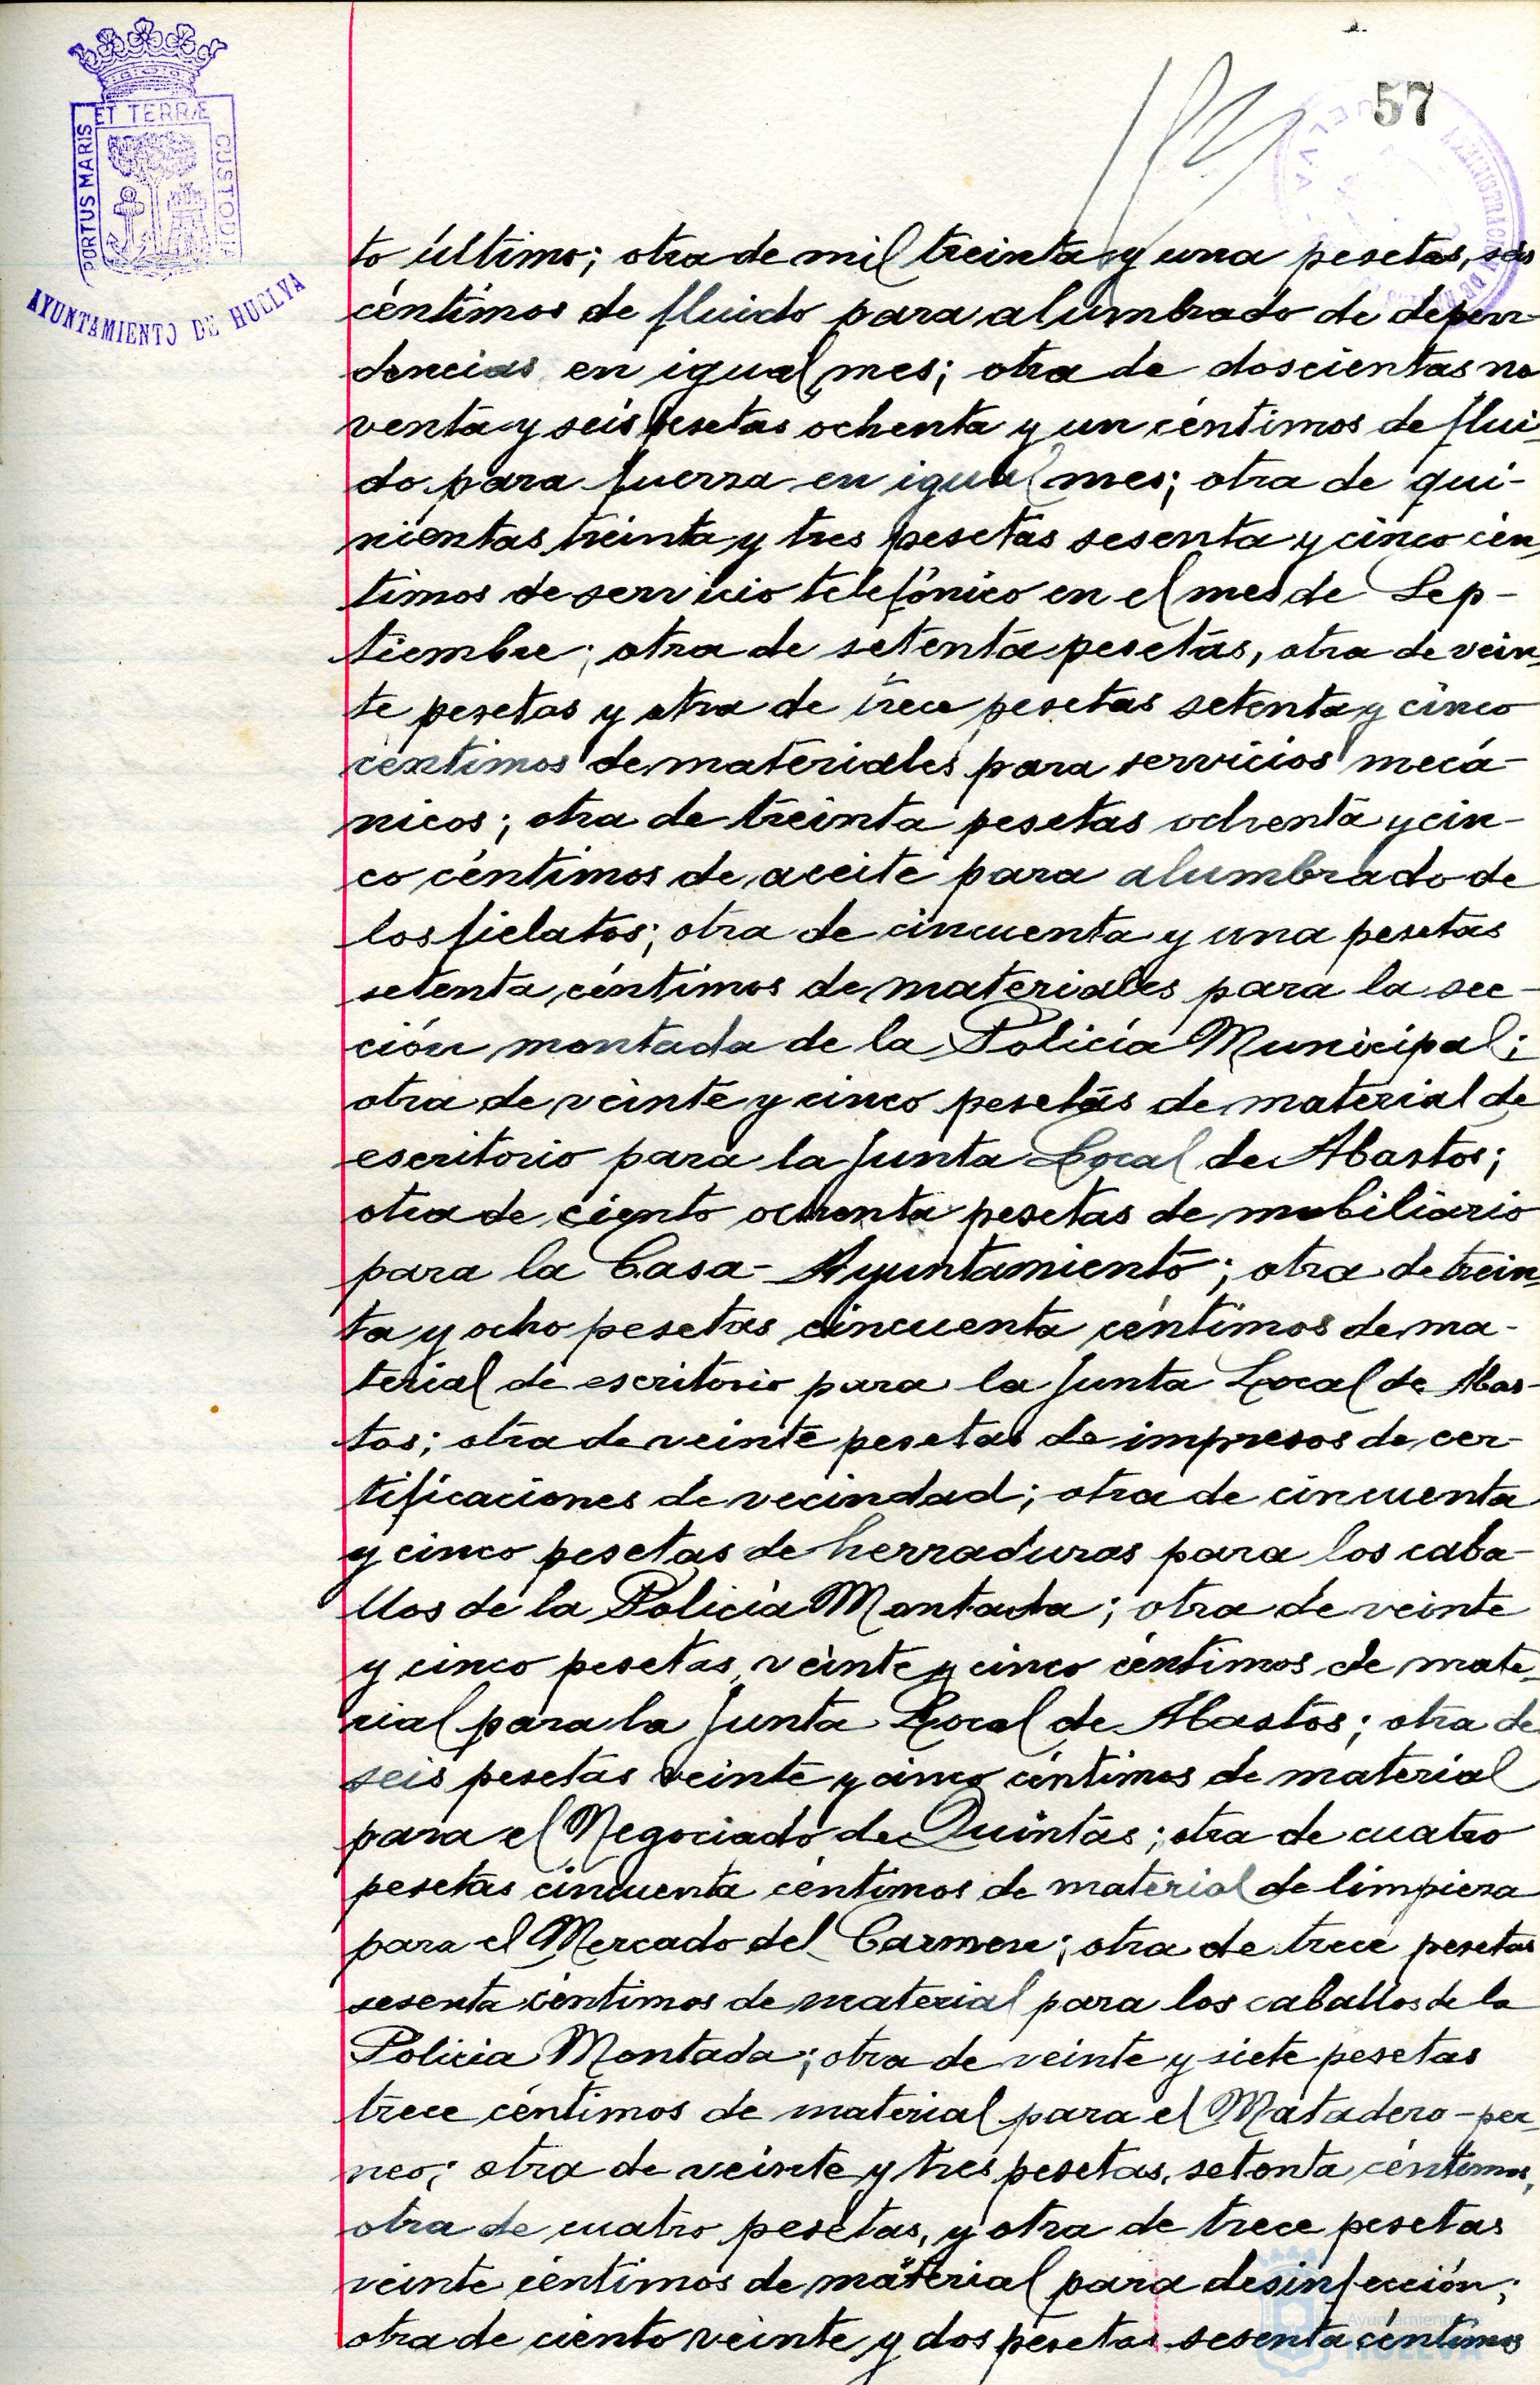 57
ET TERRÆ
PORTUS MARIS
CUSTODIA
AYUNTAMIENTO DE HUELVA
to último; otra de mil treinta y una pesetas, seis
céntimos de fluido para alumbrado de depen-
dencias en igual mes; otra de doscientas no
venta y seis pesetas ochenta y un céntimos de flui-
do para fuerza en igual mes; otra de qui-
nientas treinta y tres pesetas sesenta y cinco cén
timos de servicio telefónico en el mes de Sep-
tiembre; otra de setenta pesetas, otra de vein-
te pesetas y otra de trece pesetas setenta y cinco
céntimos de materiales para servicios mecá-
nicos; otra de treinta pesetas ochenta y cin-
co céntimos de aceite para alumbrado de
los fielatos; otra de cincuenta y una pesetas
setenta céntimos de materiales para la sec-
ción montada de la Policía Municipal;
otra de veinte y cinco pesetas de material de
escritorio para la Junta Local de Abastos;
otra de ciento ochenta pesetas de mobiliario
para la Casa-Ayuntamiento; otra de trein-
ta y ocho pesetas cincuenta céntimos de ma-
terial de escritorio para la Junta Local de Abas-
tos; otra de veinte pesetas de impresos de cer-
tificaciones de vecindad; otra de cincuenta
y cinco pesetas de herraduras para los caba-
llos de la Policía Montada; otra de veinte
y cinco pesetas, veinte y cinco céntimos de mate-
rial para la Junta Local de Abastos; otra de
seis pesetas veinte y cinco céntimos de material
para el Negociado de Quintas; otra de cuatro
pesetas cincuenta céntimos de material de limpieza
para el Mercado del Carmen; otra de trece pesetas
sesenta céntimos de material para los caballos de la
Policia Montada; otra de veinte y siete pesetas
trece céntimos de material para el Matadero-per-
neo; otra de veinte y tres pesetas, setenta céntimos,
otra de cuatro pesetas, y otra de trece pesetas
veinte céntimos de material para desinfección;
otra de ciento veinte y dos pesetas sesenta céntimos
Ayuntamiento de
HUELVA